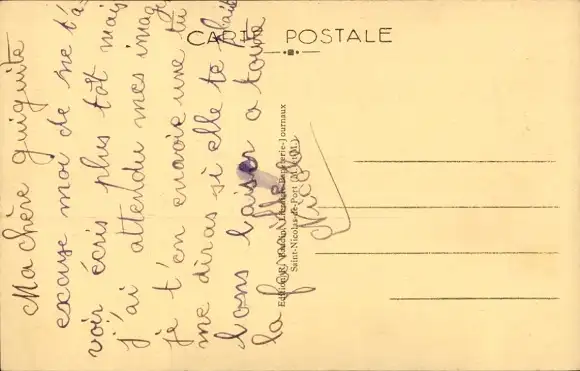 CARTE POSTALE
Ma chère guiguite
excuse moi de ne t'a-
voir écris plus tôt mais
j'ai attendu mes images
je t'en envoie une tu
me diras si elle te plait
bons baiser a toute
la famille
Nicole
Edition Librairie-Papeterie-Journaux
Saint-Nicolas-de-Port (M.-et-M.)